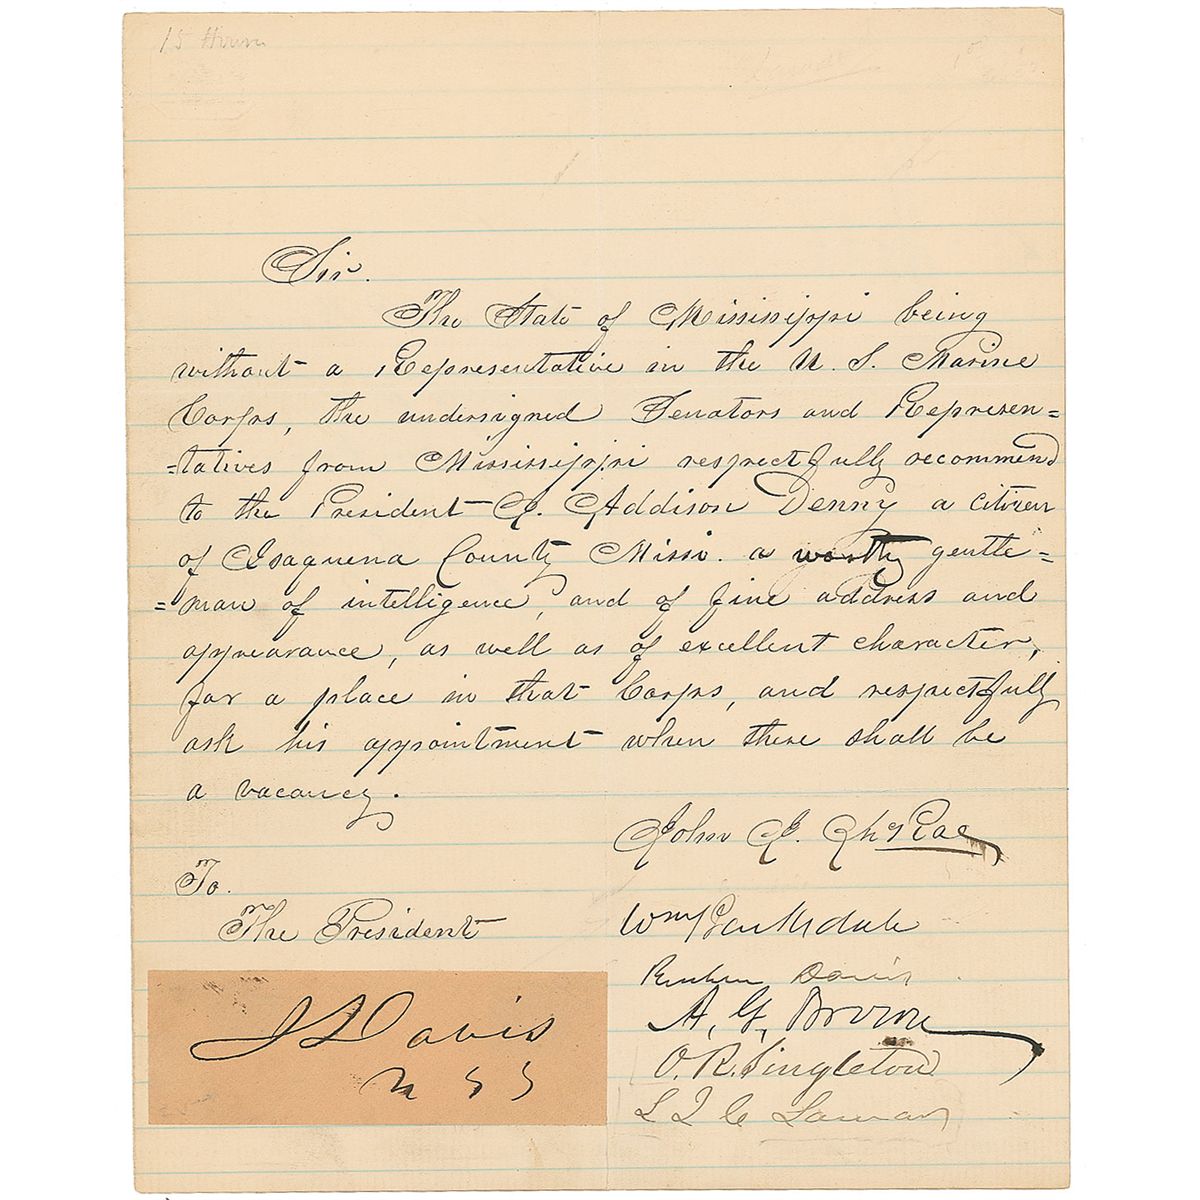 Sir.
The State of Mississippi being
without a Representative in the U. S. Marine
Corps, the undersigned Senators and Represen=
=tatives from Mississippi respectfully recommend
to the President J. Addison Denny a citizen
of Isaquena County Missi. a worthy gentle=
=man of intelligence, and of fine address and
appearance, as well as of excellent character,
for a place in that Corps, and respectfully
ask his appointment when there shall be
a vacancy.
John J. McRae
To.
The President
Wm Barksdale
Reuben Davis
A. G. Brown
O. R. Singleton
L Q C Lamar
J Davis
U S S